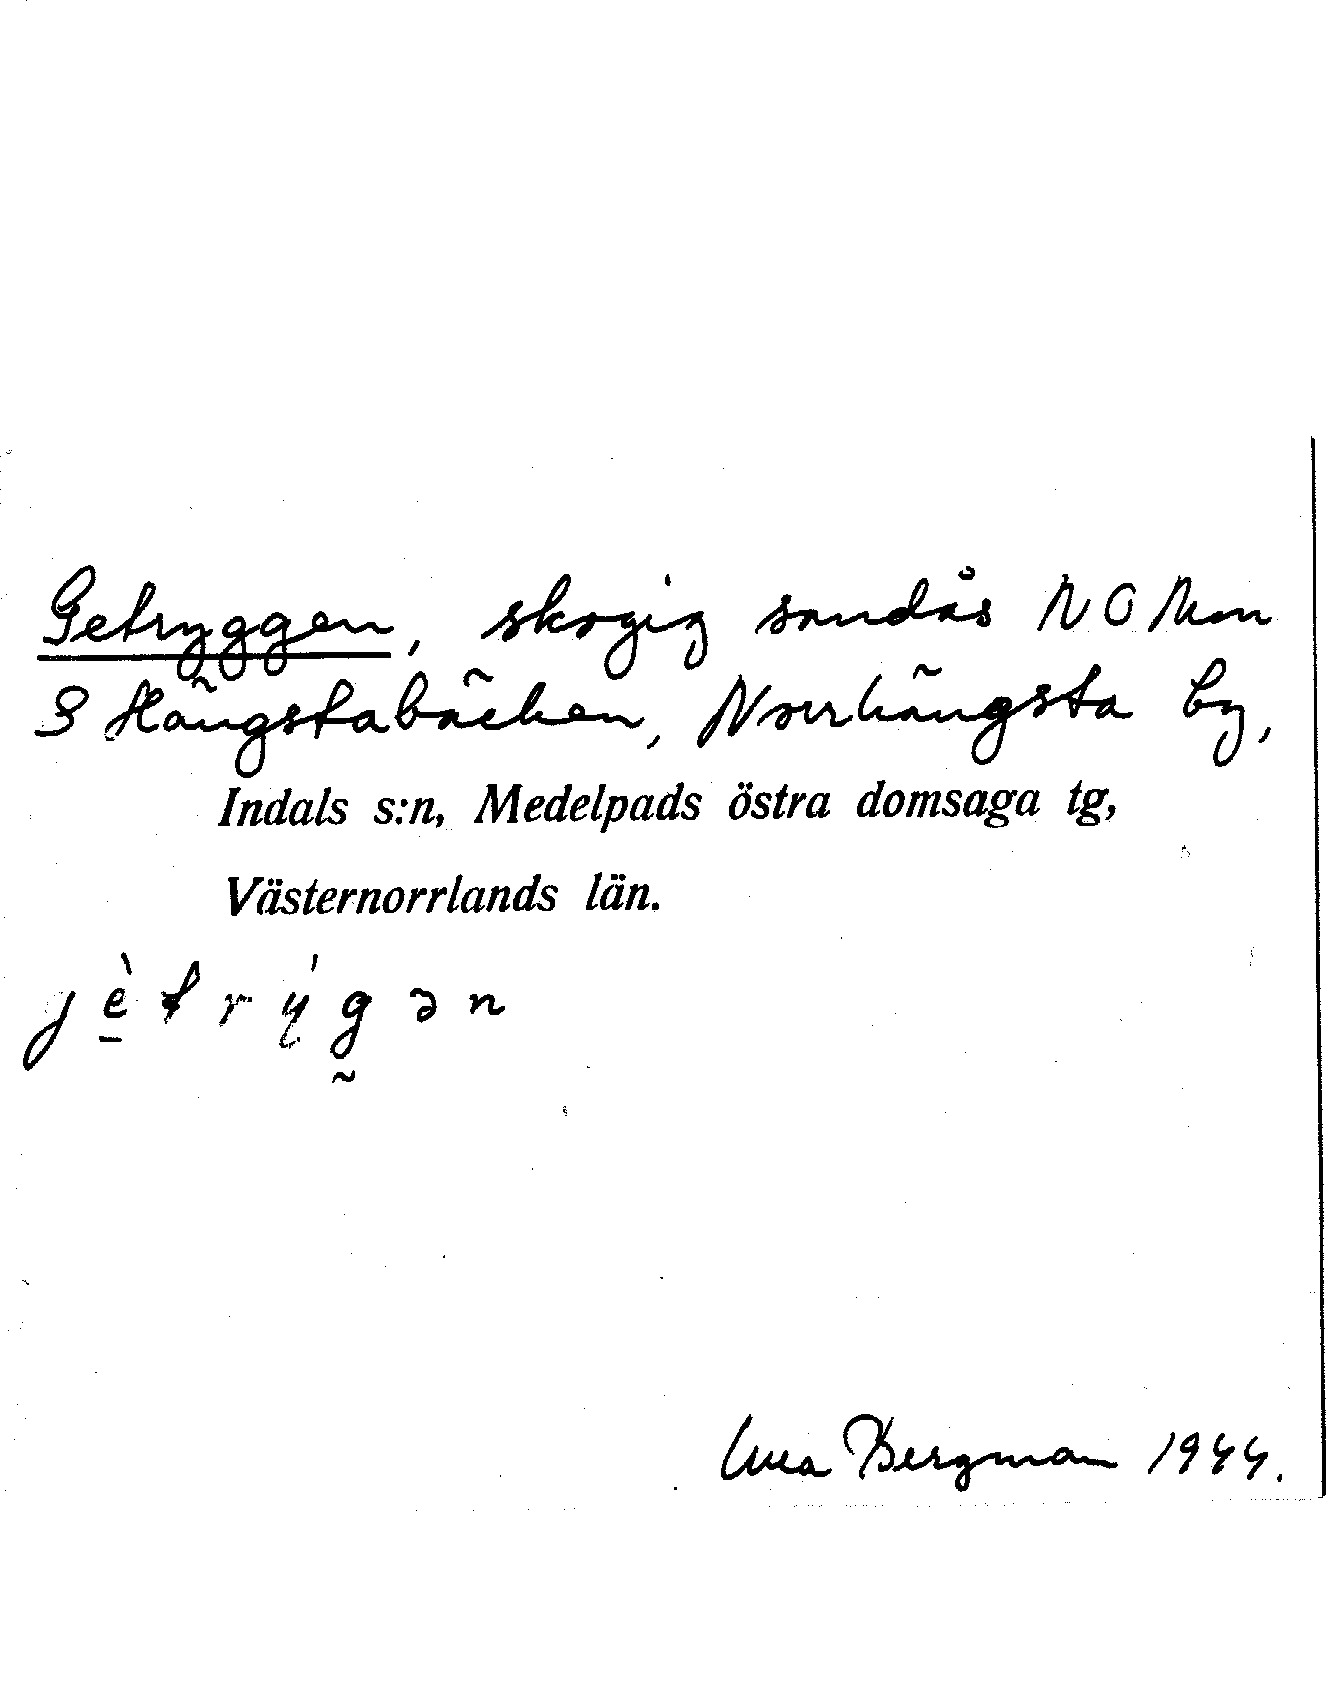 Getryggen, skogig sandås N O Mon
S Hängstabäcken, Norrhängsta by,
Indals s:n, Medelpads östra domsaga tg,
Västernorrlands län.
jè̱trýg̰ən
Bergman 1944.